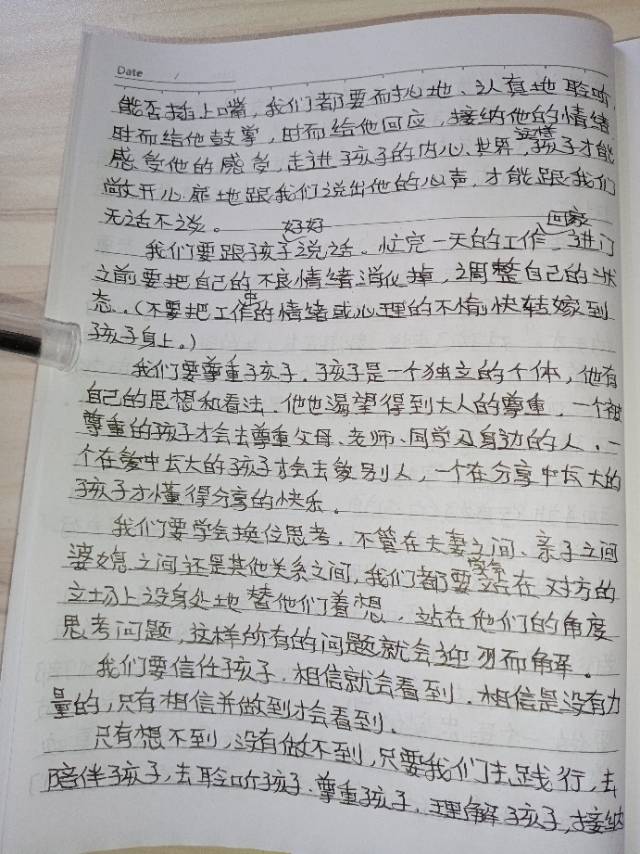 Date /
能否插上嘴，我们都要耐心地、认真地聆听，
时而给他鼓掌，时而给他回应，接纳他的情绪
感受他的感受，走进孩子的内心世界，这样孩子才能
敞开心扉地跟我们说出他的心声，才能跟我们
无话不谈。
我们要跟孩子好好说话。忙完一天的工作回家，进门
之前要把自己的不良情绪消化掉，调整自己的状
态。（不要把工作中的情绪或心理的不愉快转嫁到
孩子身上。）
我们要尊重孩子，孩子是一个独立的个体，他有
自己的思想和看法，他也渴望得到大人的尊重，一个被
尊重的孩子才会去尊重父母、老师、同学及身边的人，一
个在爱中长大的孩子才会去爱别人，一个在分享中长大的
孩子才懂得分享的快乐。
我们要学会换位思考，不管在夫妻之间、亲子之间
婆媳之间还是其他关系之间，我们都要站在对方的
立场上设身处地替他们着想，站在他们的角度
思考问题，这样所有的问题就会迎刃而解。
我们要信任孩子，相信就会看到，相信是没有力
量的，只有相信并做到才会看到。
只有想不到，没有做不到，只要我们去践行，去
陪伴孩子，去聆听孩子，尊重孩子，理解孩子，接纳